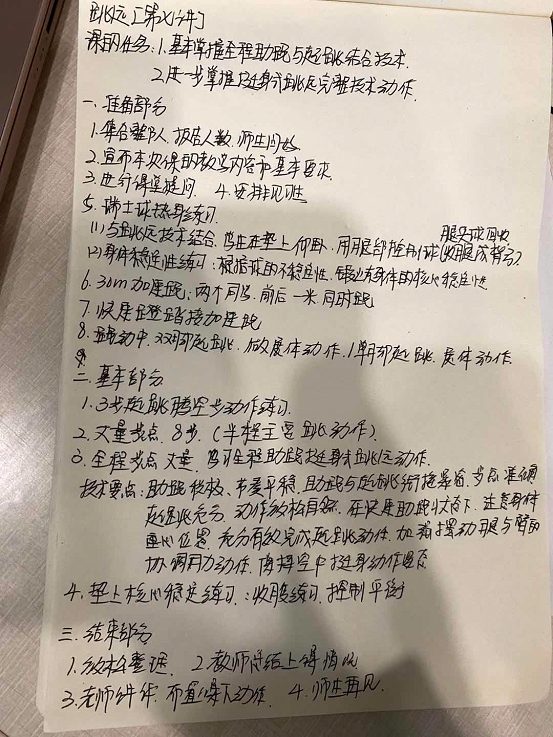 跳远 [第X课]
课的任务: 1.基本掌握全程助跑与起跳结合技术.
2.进一步掌握挺身式跳远完整技术动作.
一. 准备部分
1.集合整队、报告人数、师生问好
2.宣布本次课的教学内容和基本要求.
3.进行课堂提问 4.安排见习生
5.瑞士球热身练习.
(1)与跳远技术结合, 学生在垫上仰卧, 用腿部控制球(收腹成背弓)
(2)身体稳定性练习: 根据球的不稳定性, 锻炼身体的核心稳定性
6. 30m加速跑: 两个同学, 前后一米同时跑
7. 快速蹬踏接加速跑
8. 跑动中, 双脚起跳, 做展体动作. 1单脚起跳, 展体动作.
二. 基本部分
1. 3步起跳腾空步动作练习.
2. 丈量步点, 8步. (半程主要跳动作)
3. 全程步点丈量, 学习全程助跑挺身式跳远动作.
技术要点: 助跑积极、节奏平稳, 助跑与起跳衔接紧凑, 步点准确
起跳充分, 动作放松自然. 在快速助跑状态下, 注意身体
重心位置, 充分有效完成起跳动作. 加强摆动腿与臂的
协调用力动作, 保持空中挺身动作姿态
4. 垫上核心稳定练习: 收腹练习, 控制平衡
三. 结束部分
1.放松整理. 2.教师总结上课情况
3.老师讲评, 布置课下动作. 4.师生再见.